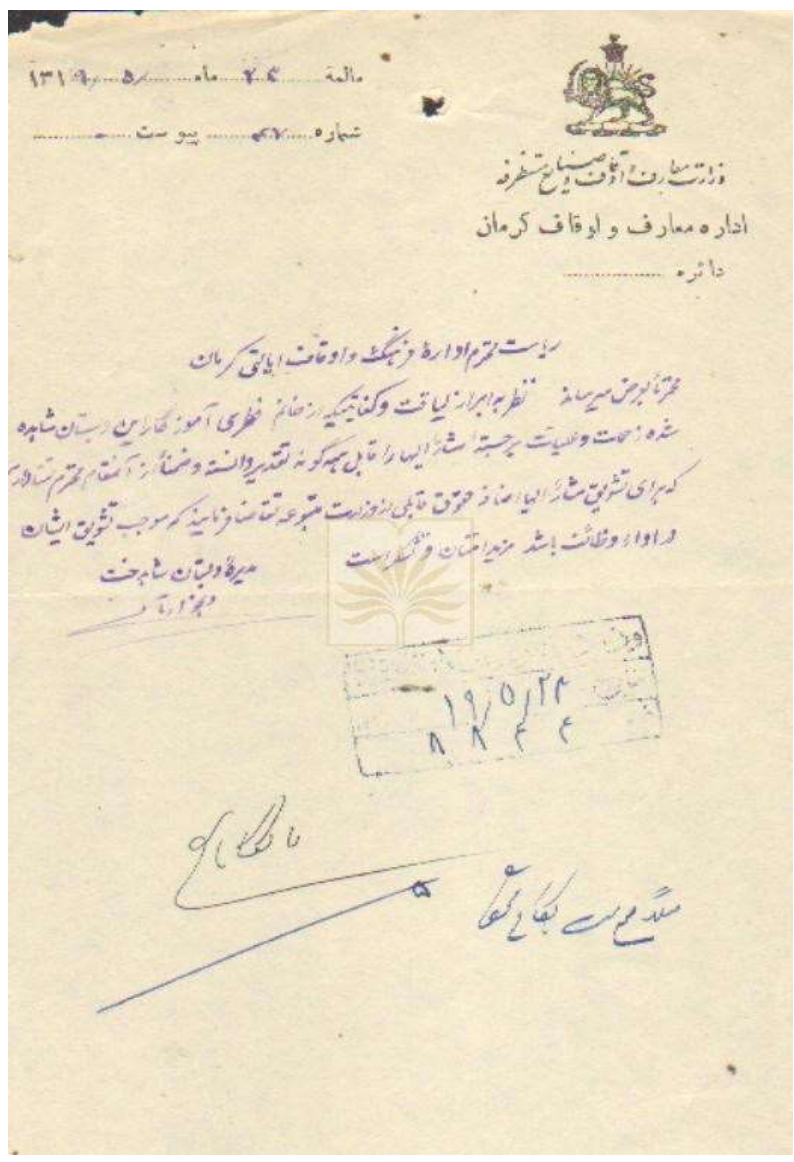 مالمهٔ ۲۳ ماه ۵ / ۱۳۱۹
شماره ۴۷ پیوست
وزارت معارف و اوقاف و صنایع مستظرفه
اداره معارف و اوقاف کرمان
دائره
ریاست محترم ادارهٔ فرهنگ و اوقاف ایالتی کرمان
محترماً بعرض میرساند نظر به ابراز لیاقت و کفایتیکه از خانم فطری آموزگار این دبستان مشاهده
شده زحمات و عملیات برجستهٔ مشارٌالیها را قابل همه گونه تقدیر دانسته و ضمناً از آنمقام محترم
که برای تشویق مشارٌالیها اضافه حقوق قابلی از وزارت متبوعه تقاضا فرمایند که موجب تشویق ایشان
در اداره وظائف باشد مزید امتنان و تشکر است
مدیرهٔ دبستان شاهدخت
۱۹/۵/۲۴
۸۸۴۴